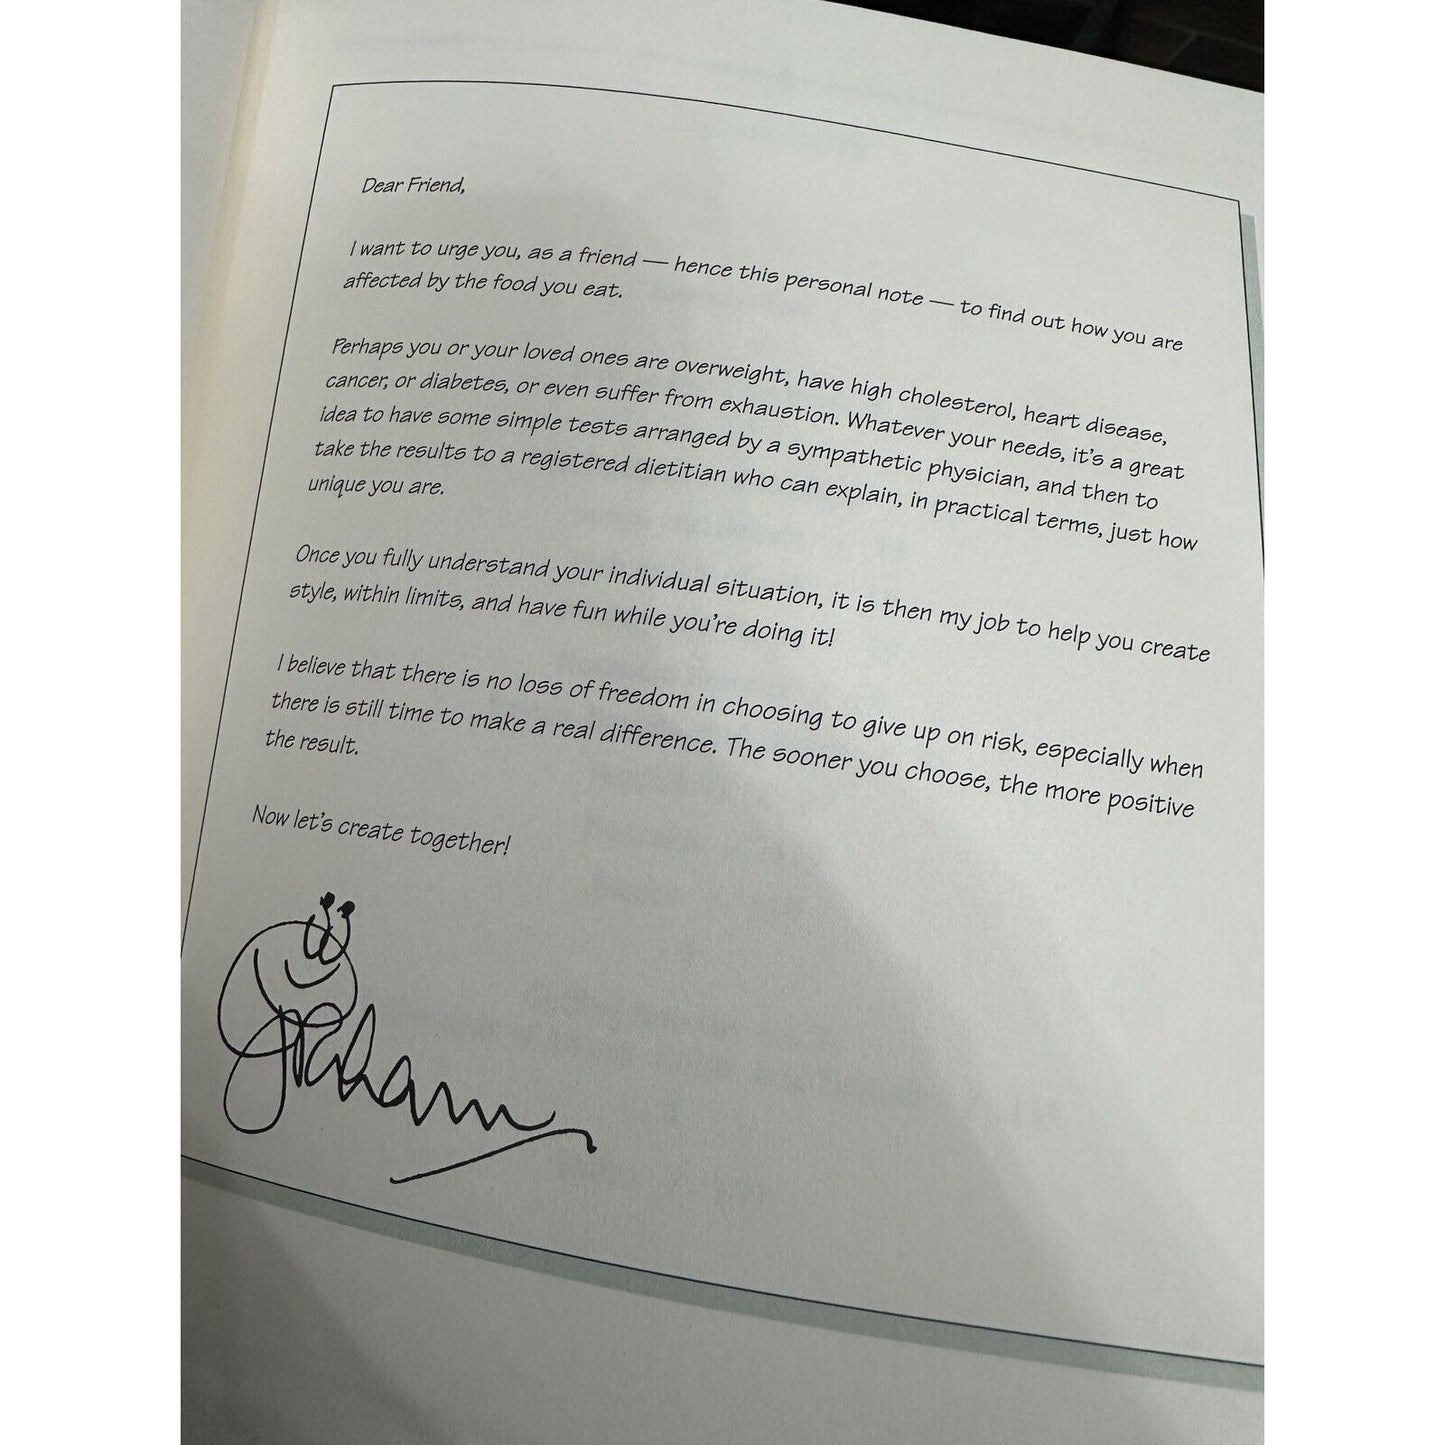 Dear Friend,
I want to urge you, as a friend — hence this personal note — to find out how you are
affected by the food you eat.
Perhaps you or your loved ones are overweight, have high cholesterol, heart disease,
cancer, or diabetes, or even suffer from exhaustion. Whatever your needs, it's a great
idea to have some simple tests arranged by a sympathetic physician, and then to
take the results to a registered dietitian who can explain, in practical terms, just how
unique you are.
Once you fully understand your individual situation, it is then my job to help you create
style, within limits, and have fun while you're doing it!
I believe that there is no loss of freedom in choosing to give up on risk, especially when
there is still time to make a real difference. The sooner you choose, the more positive
the result.
Now let's create together!
Graham